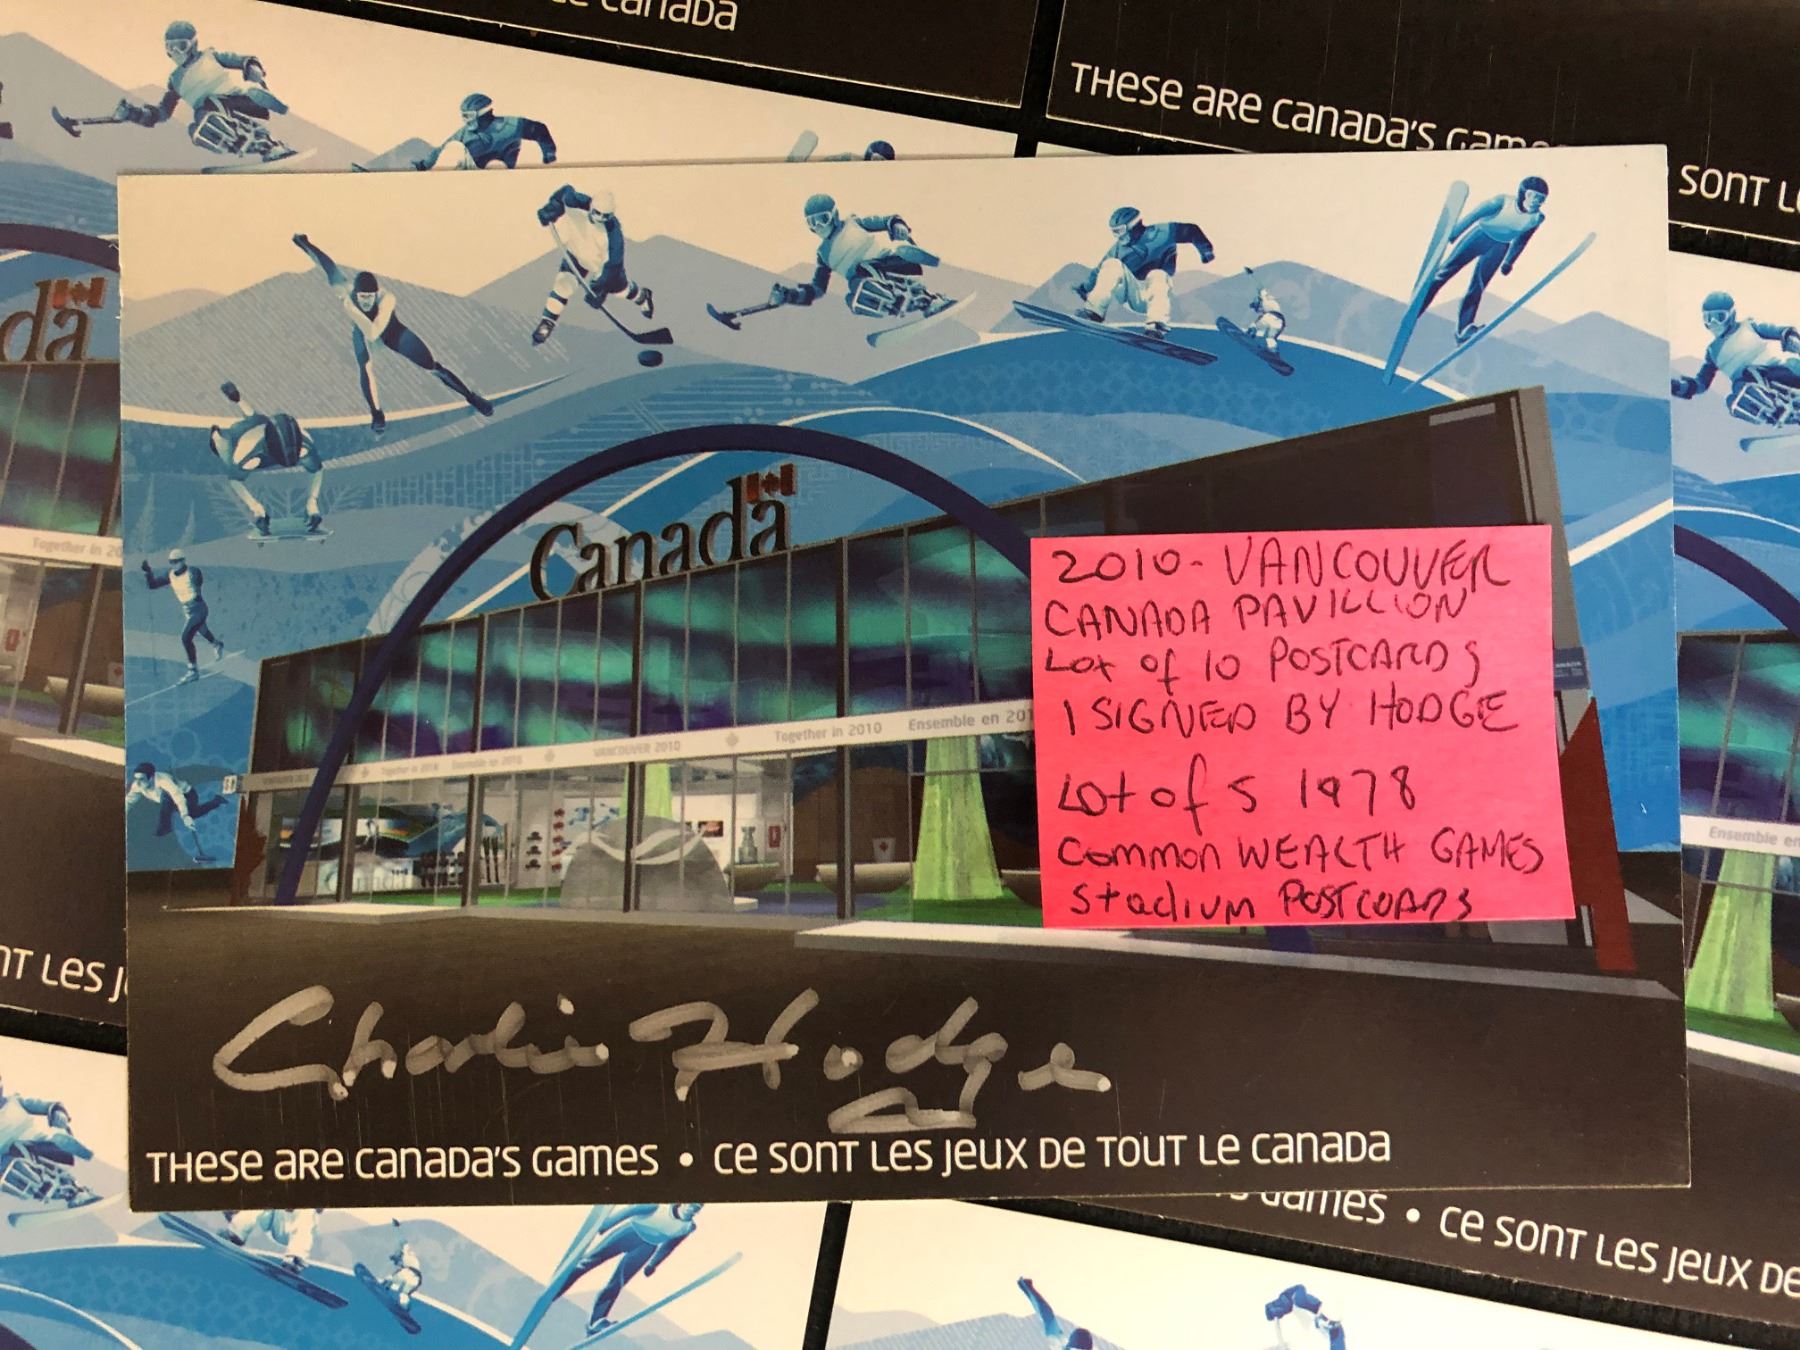 le canada
THese are canada's Game
sont l
da
Canada
2010 - VANCOUVER
CANADA PAVILLION
Lot of 10 POSTCARDS
1 SIGNED BY HODGE
Lot of 5 1978
Common WEALTH GAMES
Stadium POSTCOARDS
Together in 20
VANCOUVER 2010
Together in 2010
Ensemble en 201
Together in 2010
Ensemble en 2010
Ensemble en
Canada
nt Les j
Charlie Hodge
THese are canada's Games • ce sont Les jeux de tout le canada
Games • ce sont Les jeux de